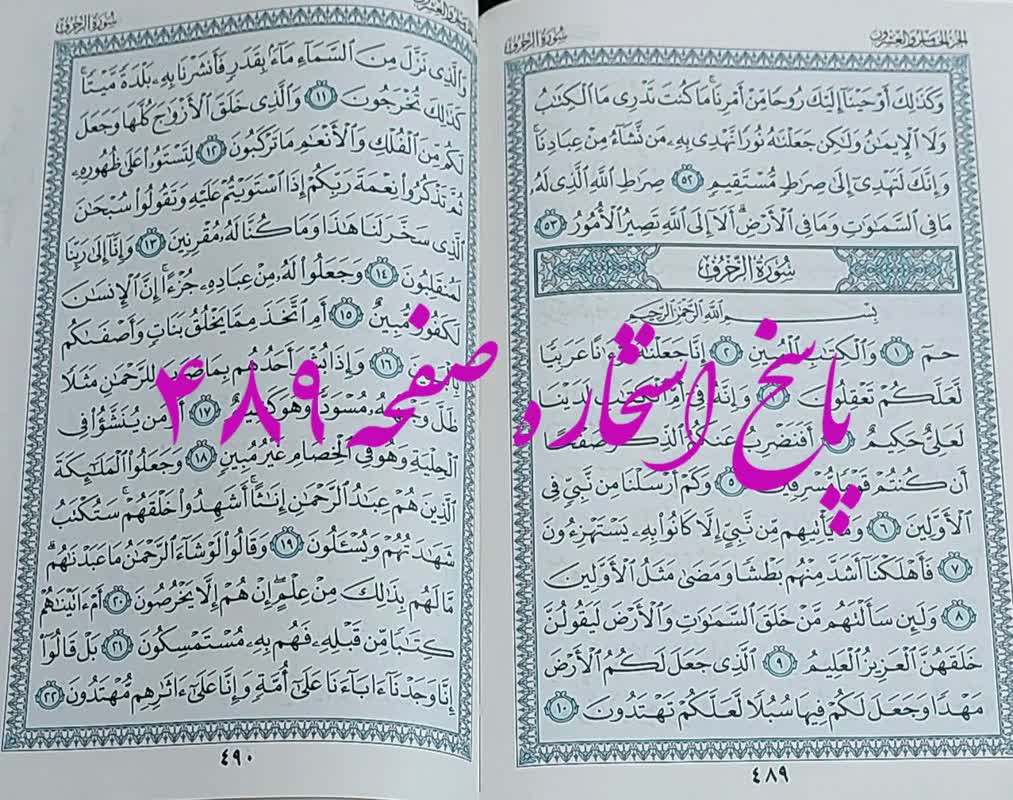 سُورَةُ الزُّخْرُفِ
الجزء الخامس والعشرون
وَكَذَٰلِكَ أَوْحَيْنَآ إِلَيْكَ رُوحًا مِّنْ أَمْرِنَا ۚ مَا كُنتَ تَدْرِى مَا الْكِتَٰبُ
وَلَا الْإِيمَٰنُ وَلَٰكِن جَعَلْنَٰهُ نُورًا نَّهْدِى بِهِۦ مَن نَّشَآءُ مِنْ عِبَادِنَا ۚ
وَإِنَّكَ لَتَهْدِىٓ إِلَىٰ صِرَٰطٍ مُّسْتَقِيمٍ ٥٢ صِرَٰطِ اللَّهِ الَّذِى لَهُۥ
مَا فِى السَّمَٰوَٰتِ وَمَا فِى الْأَرْضِ ۗ أَلَآ إِلَى اللَّهِ تَصِيرُ الْأُمُورُ ٥٣
سُورَةُ الزُّخْرُفِ
بِسْمِ اللَّهِ الرَّحْمَٰنِ الرَّحِيمِ
حمٓ ١ وَالْكِتَٰبِ الْمُبِينِ ٢ إِنَّا جَعَلْنَٰهُ قُرْءَٰنًا عَرَبِيًّا
لَّعَلَّكُمْ تَعْقِلُونَ ٣ وَإِنَّهُۥ فِىٓ أُمِّ الْكِتَٰبِ لَدَيْنَا
لَعَلِىٌّ حَكِيمٌ ٤ أَفَنَضْرِبُ عَنكُمُ الذِّكْرَ صَفْحًا
أَن كُنتُمْ قَوْمًا مُّسْرِفِينَ ٥ وَكَمْ أَرْسَلْنَا مِن نَّبِىٍّ فِى
الْأَوَّلِينَ ٦ وَمَا يَأْتِيهِم مِّن نَّبِىٍّ إِلَّا كَانُوا۟ بِهِۦ يَسْتَهْزِءُونَ
٧ فَأَهْلَكْنَآ أَشَدَّ مِنْهُم بَطْشًا وَمَضَىٰ مَثَلُ الْأَوَّلِينَ
٨ وَلَئِن سَأَلْتَهُم مَّنْ خَلَقَ السَّمَٰوَٰتِ وَالْأَرْضَ لَيَقُولُنَّ
خَلَقَهُنَّ الْعَزِيزُ الْعَلِيمُ ٩ الَّذِى جَعَلَ لَكُمُ الْأَرْضَ
مَهْدًا وَجَعَلَ لَكُمْ فِيهَا سُبُلًا لَّعَلَّكُمْ تَهْتَدُونَ ١٠
٤٨٩
سُورَةُ الزُّخْرُفِ
وَالَّذِى نَزَّلَ مِنَ السَّمَآءِ مَآءً بِقَدَرٍ فَأَنشَرْنَا بِهِۦ بَلْدَةً مَّيْتًا ۚ
كَذَٰلِكَ تُخْرَجُونَ ١١ وَالَّذِى خَلَقَ الْأَزْوَٰجَ كُلَّهَا وَجَعَلَ
لَكُم مِّنَ الْفُلْكِ وَالْأَنْعَٰمِ مَا تَرْكَبُونَ ١٢ لِتَسْتَوُۥا۟ عَلَىٰ ظُهُورِهِۦ
ثُمَّ تَذْكُرُوا۟ نِعْمَةَ رَبِّكُمْ إِذَا اسْتَوَيْتُمْ عَلَيْهِ وَتَقُولُوا۟ سُبْحَٰنَ
الَّذِى سَخَّرَ لَنَا هَٰذَا وَمَا كُنَّا لَهُۥ مُقْرِنِينَ ١٣ وَإِنَّآ إِلَىٰ رَبِّنَا
لَمُنقَلِبُونَ ١٤ وَجَعَلُوا۟ لَهُۥ مِنْ عِبَادِهِۦ جُزْءًا ۚ إِنَّ الْإِنسَٰنَ
لَكَفُورٌ مُّبِينٌ ١٥ أَمِ اتَّخَذَ مِمَّا يَخْلُقُ بَنَاتٍ وَأَصْفَىٰكُم
بِالْبَنِينَ ١٦ وَإِذَا بُشِّرَ أَحَدُهُم بِمَا ضَرَبَ لِلرَّحْمَٰنِ مَثَلًا
ظَلَّ وَجْهُهُۥ مُسْوَدًّا وَهُوَ كَظِيمٌ ١٧ أَوَمَن يُنَشَّؤُا۟ فِى
الْحِلْيَةِ وَهُوَ فِى الْخِصَامِ غَيْرُ مُبِينٍ ١٨ وَجَعَلُوا۟ الْمَلَٰٓئِكَةَ
الَّذِينَ هُمْ عِبَٰدُ الرَّحْمَٰنِ إِنَٰثًا ۚ أَشَهِدُوا۟ خَلْقَهُمْ ۚ سَتُكْتَبُ
شَهَٰدَتُهُمْ وَيُسْـَٔلُونَ ١٩ وَقَالُوا۟ لَوْ شَآءَ الرَّحْمَٰنُ مَا عَبَدْنَٰهُم ۗ
مَّا لَهُم بِذَٰلِكَ مِنْ عِلْمٍ ۖ إِنْ هُمْ إِلَّا يَخْرُصُونَ ٢٠ أَمْ ءَاتَيْنَٰهُمْ
كِتَٰبًا مِّن قَبْلِهِۦ فَهُم بِهِۦ مُسْتَمْسِكُونَ ٢١ بَلْ قَالُوٓا۟
إِنَّا وَجَدْنَآ ءَابَآءَنَا عَلَىٰٓ أُمَّةٍ وَإِنَّا عَلَىٰٓ ءَاثَٰرِهِم مُّهْتَدُونَ ٢٢
٤٩٠
پاسخ استخاره صفحه ۴۸۹